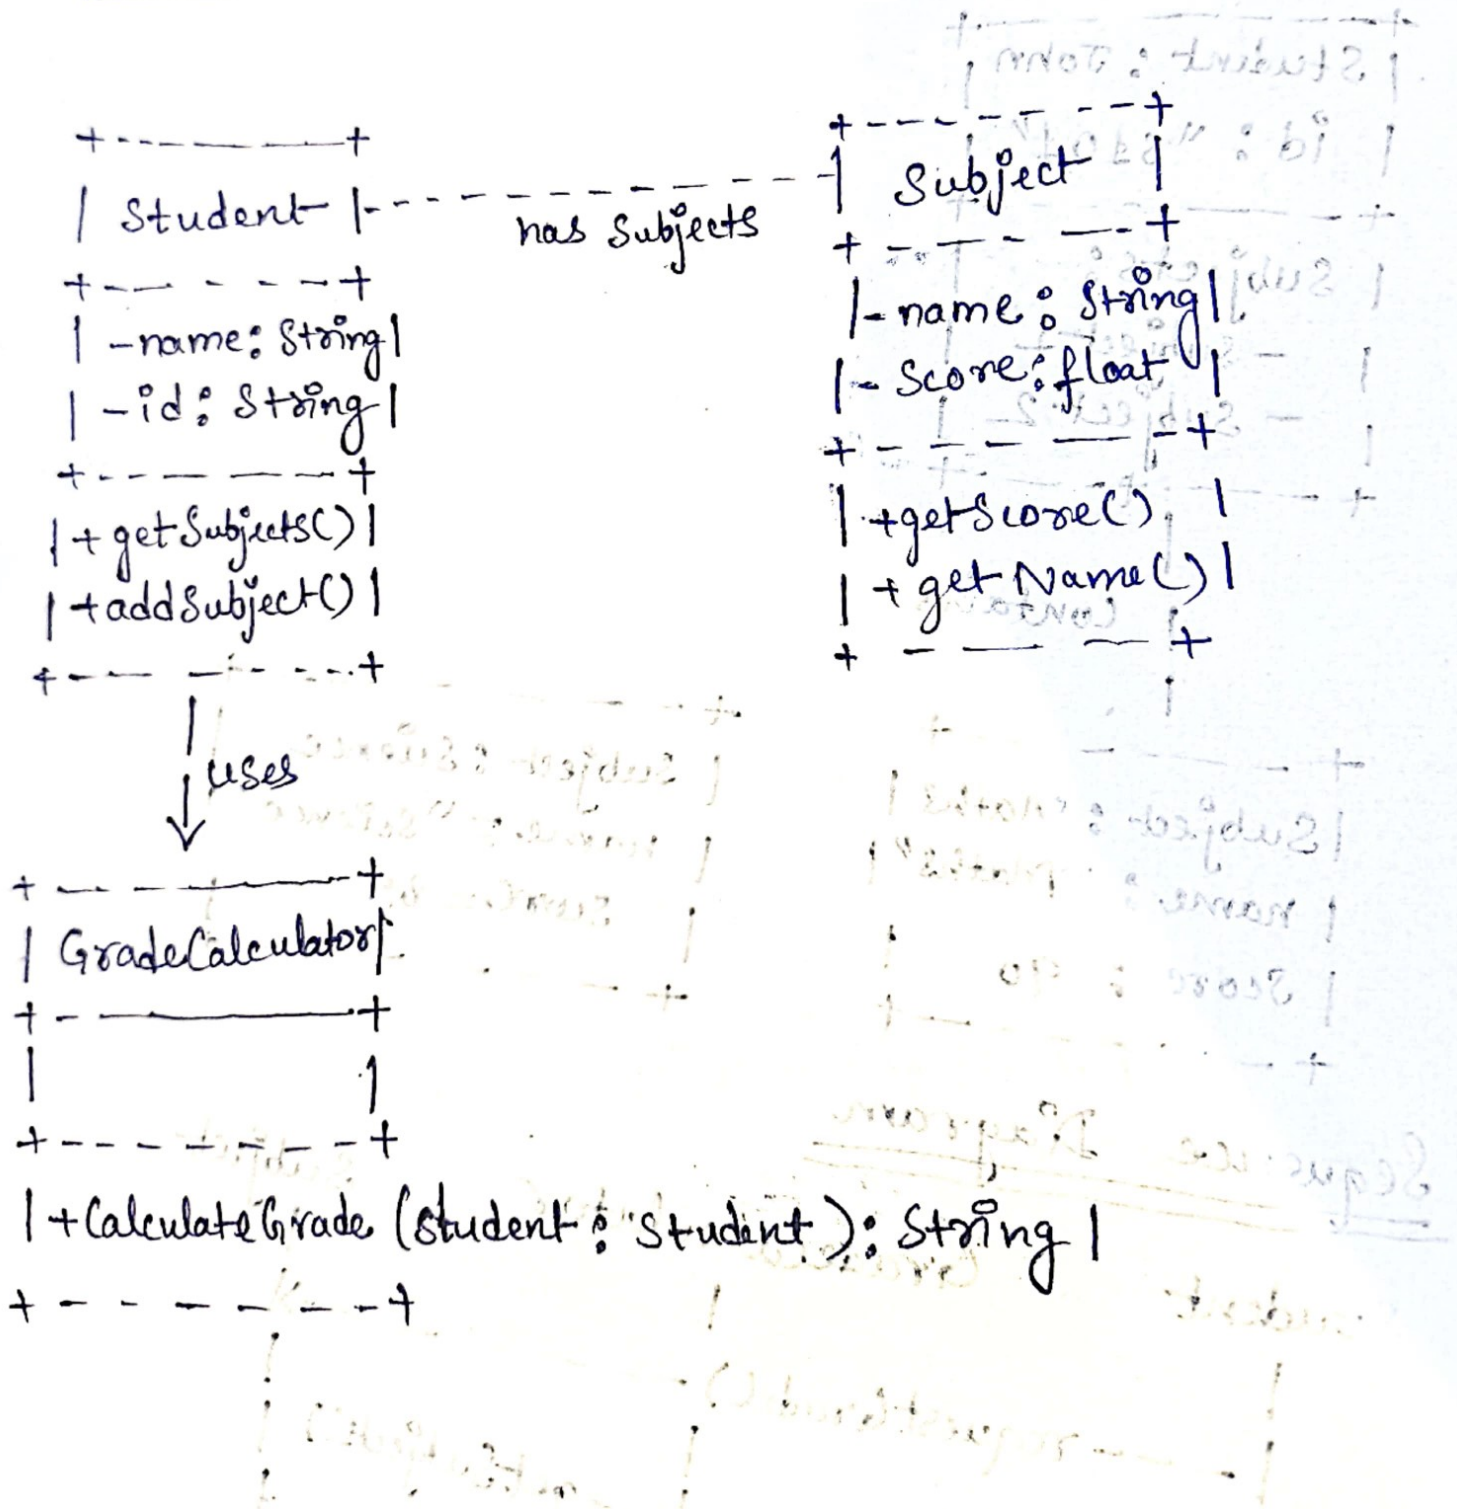 Student
has Subjects
Subject
-name: String
-id: String
+getSubjects()
+addSubject()
-name: String
-Score: float
+getScore()
+getName()
uses
GradeCalculator
+CalculateGrade (student: Student): String